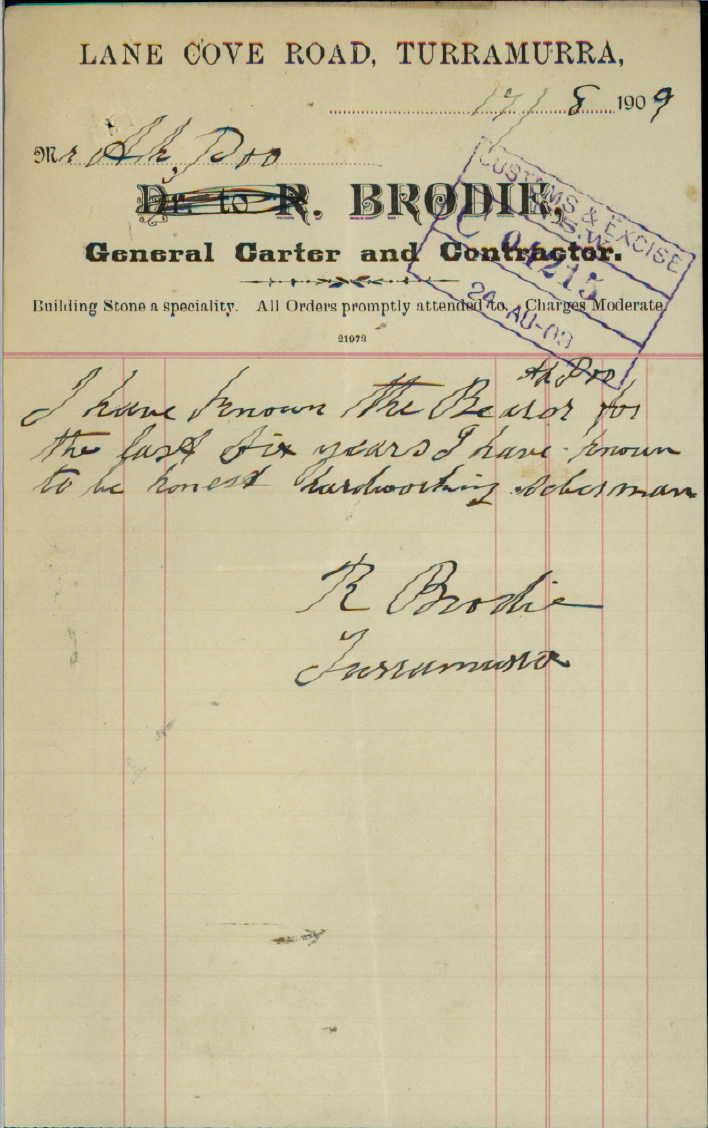 LANE COVE ROAD, TURRAMURRA,
17/8 1909
Mr Ah Poo
Dr. to R. BRODIE,
General Carter and Contractor.
Building Stone a speciality. All Orders promptly attended to. Charges Moderate.
21079
CUSTOMS & EXCISE
N.S.W.
C 04215
24 AU-09
Ah Poo
I have known the Bearor for
the last six years I have known
to be honest hardworking sober man
R Brodie
Turramurra